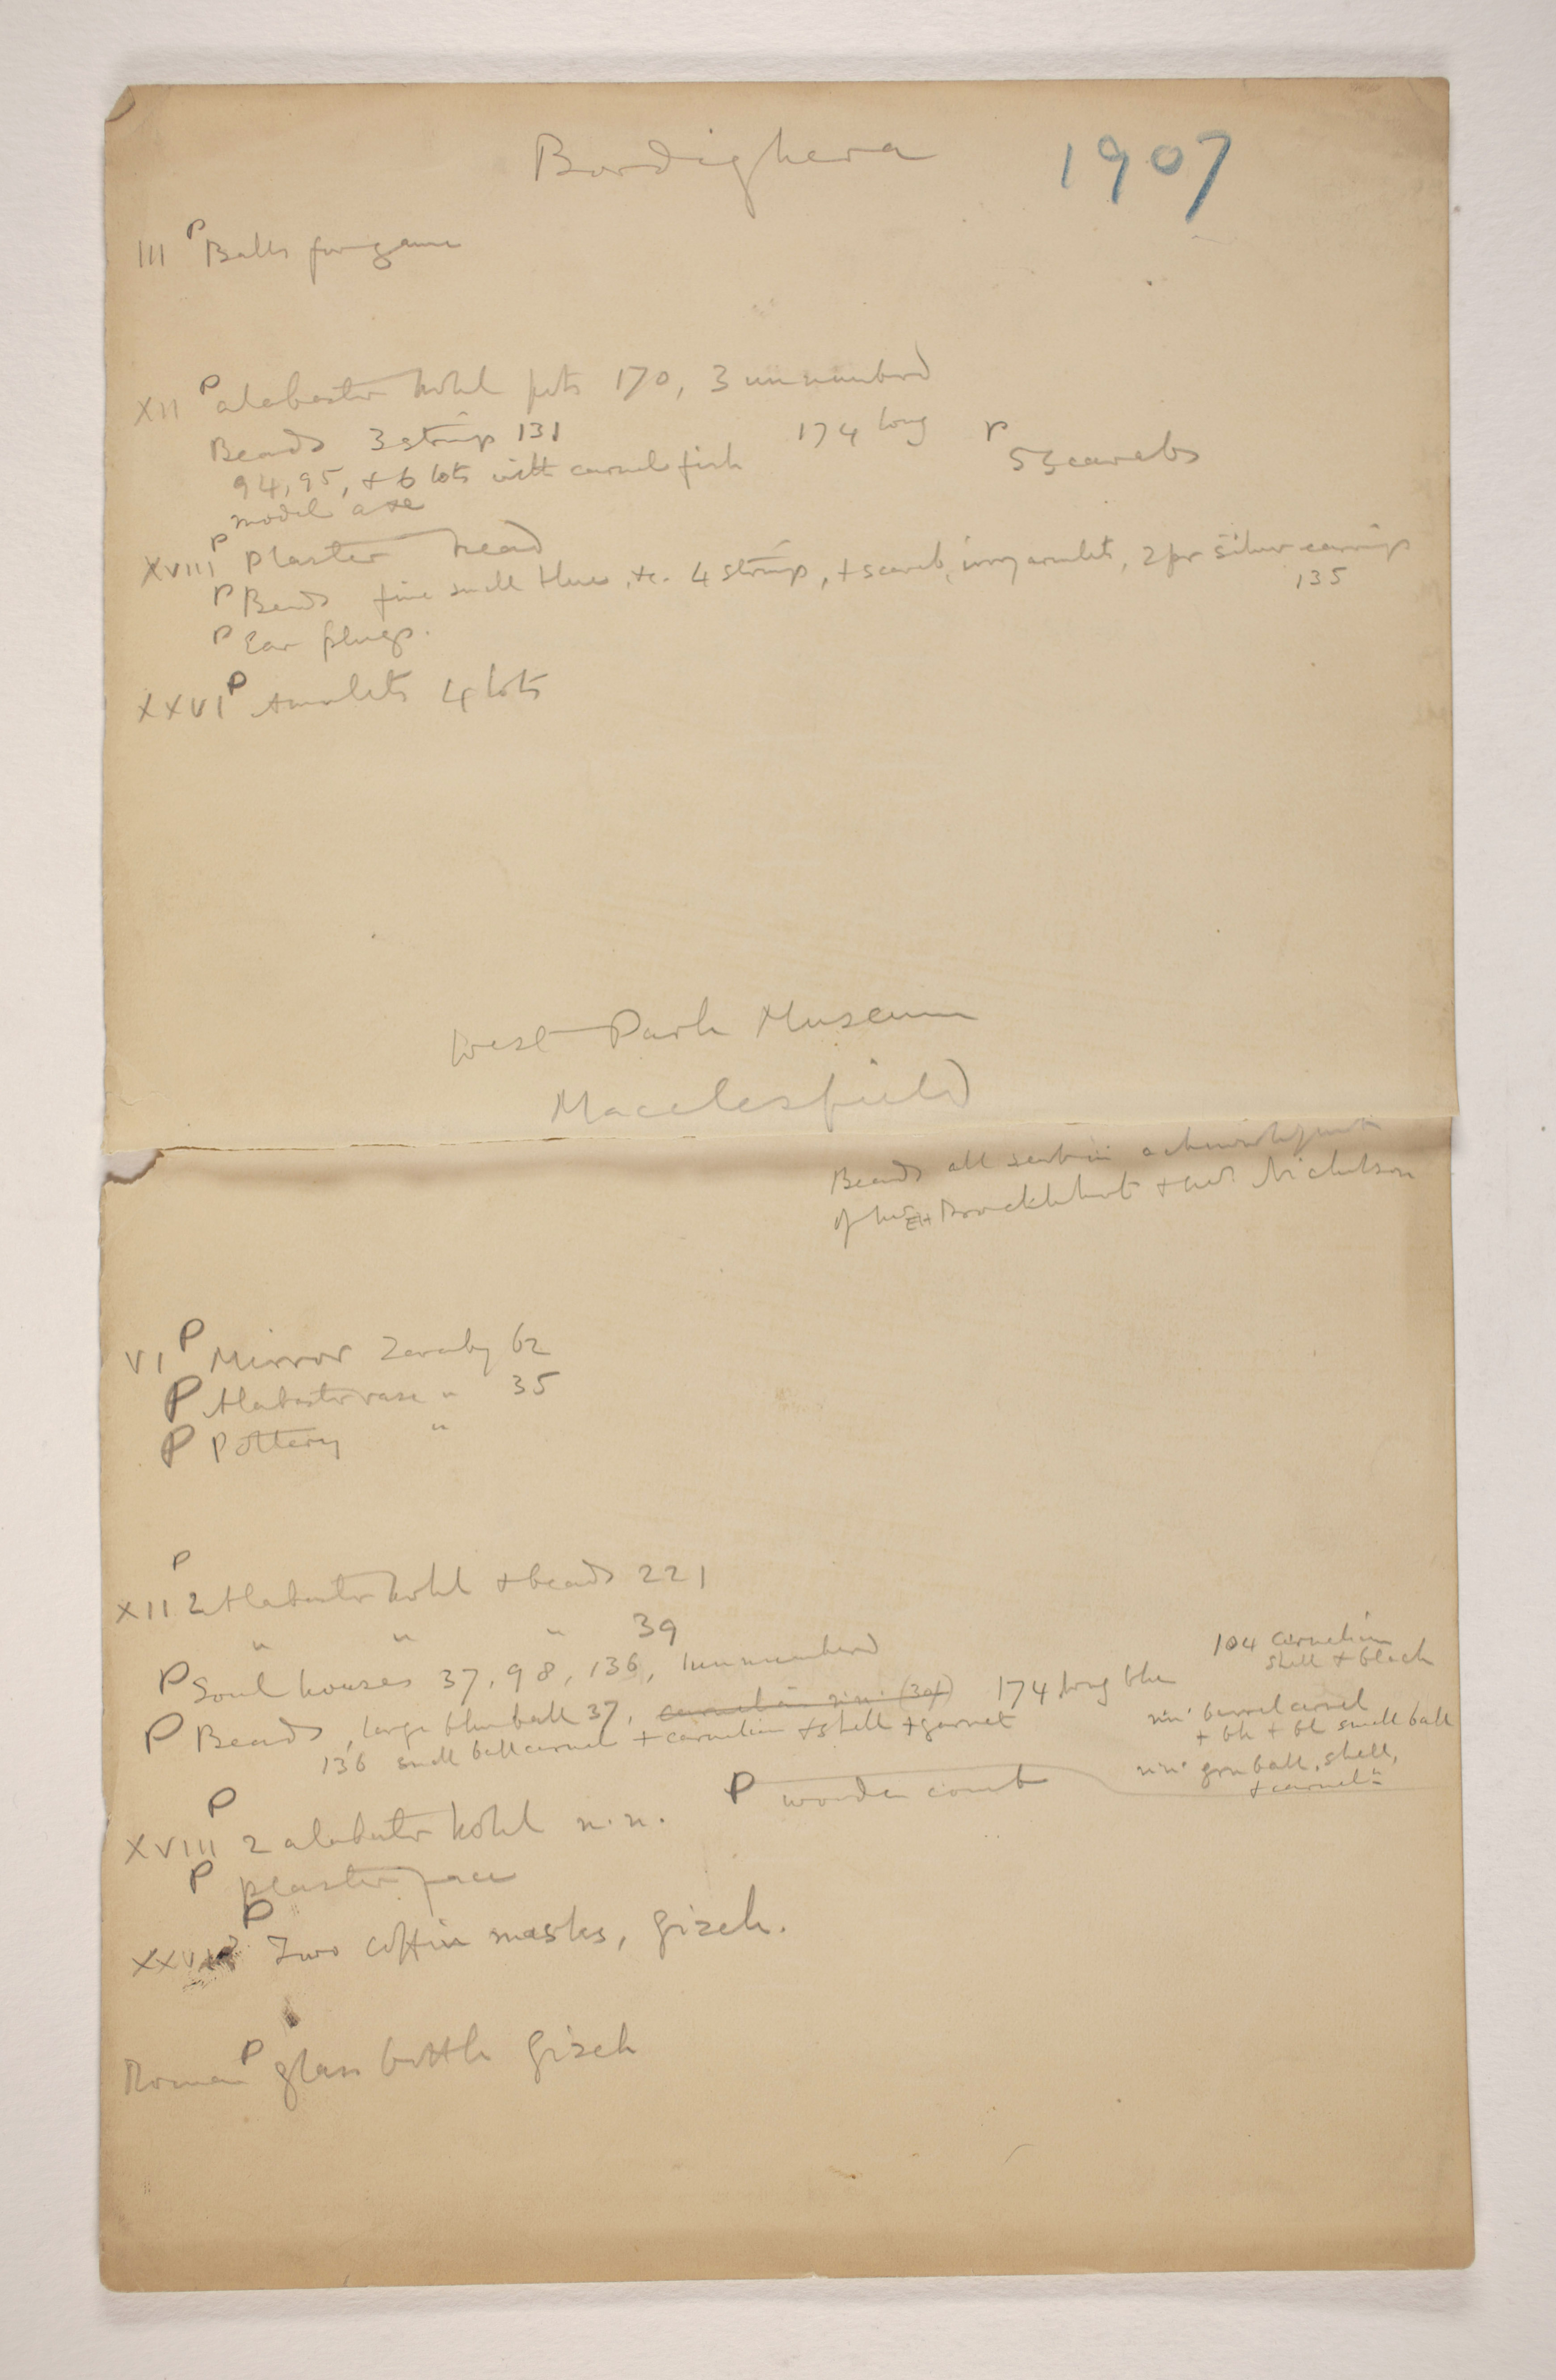 Bordighera 1907
III P Balls for game
XII P alabaster kohl pots 170, 3 unnumbered
Beads 3 strings 131 174 long P 5 Scarabs
94, 95, + 6 lots with carnel fish
model axe
XVIII P plaster head
P Beads fine small blue, &c. 4 strings, + scarab, ivory amulet, 2 pr silver earrings
135
P Ear plugs.
XXVI P Amulets 4 lots
West Park Museum
Macclesfield
Beads all sent in acknowledgment
of Brocklehurst + Nicholson
VI P Mirror Zaraby 62
P Alabaster vase " 35
P Pottery "
P
XII 2 Alabaster kohl + beads 221
" " " 39
P Soul houses 37, 98, 136, 1 unnumbered
104 carnelian
shell + black
P Beads, large blue ball 37, 174 long blue
136 small ball carnel + carnelian + shell + garnet
n.n. barrel carnel
+ bk + bl small ball
n.n. grn ball, shell,
+ carneln
P wooden comb
P
XVIII 2 alabaster kohl n.n.
P plaster face
P Two coffin masks, Gizeh.
Roman P glass bottle Gizeh